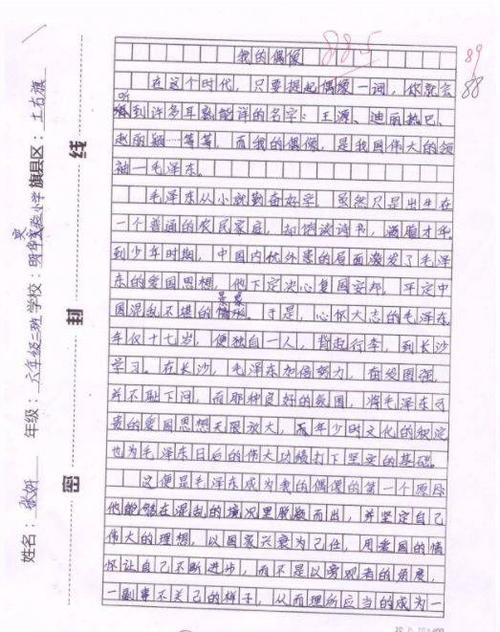 我的偶像
88.5
89
88
在这个时代，只要提起偶像一词，你就会
听到许多耳熟能详的名字：王源、迪丽热巴、
赵丽颖……等等，而我的偶像，是我国伟大的领
袖—毛泽东。
毛泽东从小就勤奋好学，虽然只是出生在
一个普通的农民家庭，却饱读诗书，满腹才华。
到少年时期，中国内忧外患的局面激发了毛泽
东的爱国思想，他下定决心复国安邦，平定中
国混乱不堪的情景。于是，心怀大志的毛泽东
年仅十七岁，便独自一人，背起行李，到长沙
学习。在长沙，毛泽东加倍努力，奋发图强，
并不耻下问，而那种良好的氛围，将毛泽东可
贵的爱国思想无限放大，而年少时文化的积淀
也为毛泽东日后的伟大功绩打下坚实的基础。
这便是毛泽东成为我的偶像的第一个原因
他能够在混乱的境况里脱颖而出，并坚定自己
伟大的理想，以国家兴衰为己任，用爱国的情
怀让自己不断进步，而不是以旁观者的角度，
一副事不关己的样子，从而理所应当的成为一
线
封
密
姓名：张妍 年级：六年级三班 学校：小学 旗县区：土右旗